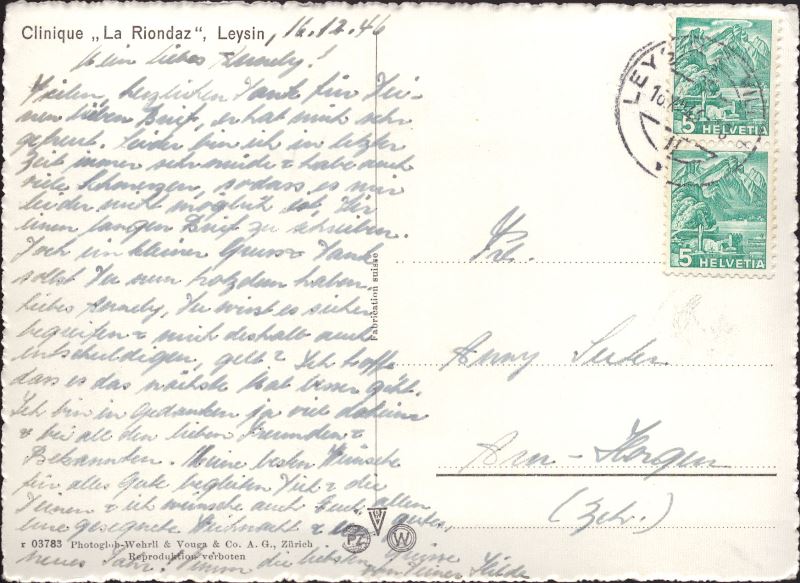 Clinique „La Riondaz", Leysin, 16.12.46
Mein liebes Annely!
Vielen, herzlichen Dank für Dei-
nen lieben Brief, er hat mich sehr
gefreut. Leider bin ich in letzter
Zeit immer sehr müde & habe auch
viele Schmerzen, sodass es mir
leider nicht möglich ist, Dir
einen langen Brief zu schreiben.
Doch ein kleiner Gruss & Dank
sollst Du nun trotzdem haben,
liebes Annely, Du wirst es sicher
begreifen & mich deshalb auch
entschuldigen, gelt? Ich hoffe
dass es das nächste Mal besser geht.
Ich bin in Gedanken ja viel daheim
& bei all den lieben Freunden &
Bekannten. Meine besten Wünsche
für alles Gute begleiten Dich & die
Deinen & ich wünsche auch Euch allen
eine gesegnete Weihnacht & ein gutes,
neues Jahr. Nimm die liebsten Grüsse
von Deiner Hilde
r 03783 Photoglob-Wehrli & Vouga & Co. A. G., Zürich
Reproduktion verboten
Fabrication suisse
PZ
W
LEYSIN
5 HELVETIA
5 HELVETIA
Frl.
Anny
Arn-Horgen
(Zch.)